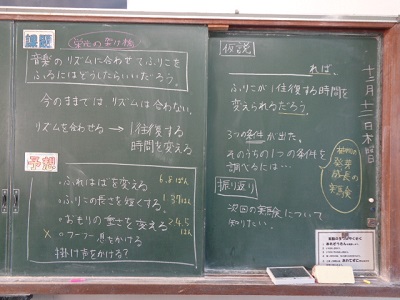 課題
栄光の架け橋
音楽のリズムに合わせてふりこを
ふるにはどうしたらいいだろう。
今のままではリズムは合わない。
リズムを合わせる → 1往復する
時間を変える
予想
・ふれはばを変える 6.8ぱん
・ふりこの長さを短くする。 37ぱん
・おもりの重さを変える 2.4.5ぱん
×・フーフー息をかける
掛け声をかける?
仮説
れば、
ふりこが1往復する時間を
変えられるだろう。
3つの条件が出た。
そのうちの1つの条件を
調べるには…
植物の
発芽
成長の
実験
振り返り
次回の実験について
知りたい。
十二月十二日木曜